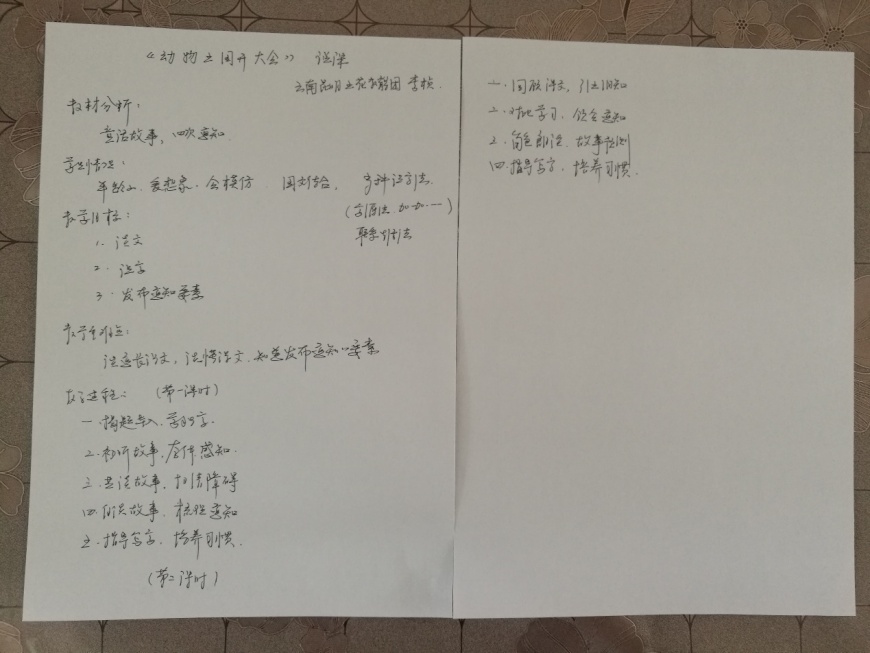 《动物王国开大会》 说课
云南昆明 李桢
教材分析:
童话故事, 四次通知
学生情况:
年龄小、爱想象、会模仿
多种识字法
教学目标:
(字源法、加一加……)
1. 读文
2. 识字
3. 发布通知要素
教学重难点:
读通长课文, 读懂课文、知道发布通知的要素
教学过程: (第一课时)
一. 揭题导入、学习字.
二. 初听故事, 整体感知.
三. 共读故事, 扫清障碍
四. 故事、梳理通知
五. 指导写字、培养习惯.
(第二课时)
一. 回顾课文, 引出通知
二. 对比学习, 体会通知
三. 角色朗读、故事检测
四. 指导写字、培养习惯.